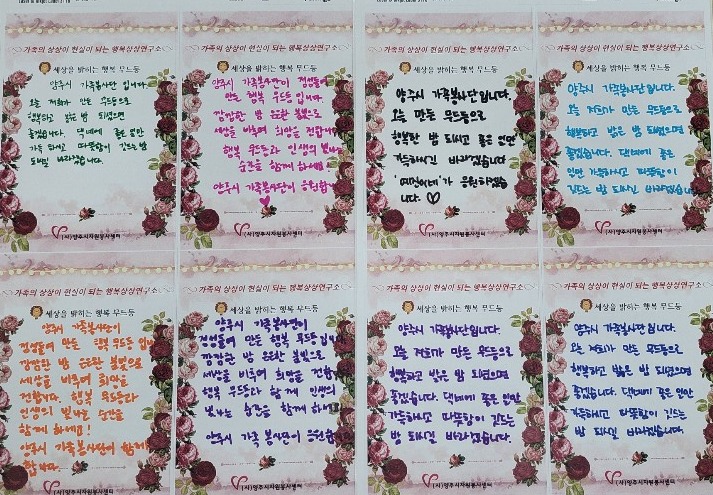 가족의 상상이 현실이 되는 행복상상연구소
세상을 밝히는 행복 무드등
양주시 가족봉사단 입니다.
오늘 저희가 만든 무드등으로
행복하고 밝은 밤 되셨으면
좋겠습니다. 댁내에 좋은 일만
가득 하시고 따뜻함이 깃드는 밤
되시길 바라겠습니다.
가족의 상상이 현실이 되는 행복상상연구소
세상을 밝히는 행복 무드등
양주시 가족봉사단이 정성들여
만든 행복 무드등 입니다.
깜깜한 밤 은은한 불빛으로
세상을 비추며 희망을 전합니다
행복 무드등과 인생의 빛나는
순간을 함께 하세요!
양주시 가족봉사단이 응원합니다
(사)양주시자원봉사센터
가족의 상상이 현실이 되는 행복상상연구소
세상을 밝히는 행복 무드등
양주시 가족봉사단입니다.
오늘 만든 무드등으로
행복한 밤 되시고 좋은 일만
가득하시길 바라겠습니다
가 응원하겠습
니다. ♡
(사)양주시자원봉사센터
가족의 상상이 현실이 되는 행복상상연구소
세상을 밝히는 행복 무드등
양주시 가족봉사단입니다.
오늘 저희가 만든 무드등으로
행복하고 밝은 밤 되셨으면
좋겠습니다. 댁내에 좋은
일만 가득하고 따뜻함이
깃드는 밤 되시길 바라겠습니다.
가족의 상상이 현실이 되는 행복상상연구소
세상을 밝히는 행복 무드등
양주시 가족봉사단이
정성들여 만든 행복 무드등 입니다
깜깜한 밤 은은한 불빛으로
세상을 비추며 희망을
전합니다. 행복 무드등과
인생의 빛나는 순간을
함께 하세요!
양주시 가족봉사단이 함께
합니다.
(사)양주시자원봉사센터
가족의 상상이 현실이 되는 행복상상연구소
세상을 밝히는 행복 무드등
양주시 가족봉사단이
정성들여 만든 행복 무드등 입니다
깜깜한 밤 은은한 불빛으로
세상을 비추며 희망을 전합
행복 무드등과 함께 인생의
빛나는 순간을 함께 하세요
양주시 가족 봉사단이 응원합니다
(사)양주시자원봉사센터
가족의 상상이 현실이 되는 행복상상연구소
세상을 밝히는 행복 무드등
양주시 가족봉사단입니다.
오늘 저희가 만든 무드등으로
행복하고 밝은 밤 되셨으면
좋겠습니다. 댁내에 좋은 일만
가득하시고 따뜻함이 깃드는
밤 되시길 바라겠습니다.
(사)양주시자원봉사센터
가족의 상상이 현실이 되는 행복상상연구소
세상을 밝히는 행복 무드등
양주시 가족봉사단입니다.
오늘 저희가 만든 무드등으로
행복하고 밝은 밤 되셨으면
좋겠습니다. 댁내에 좋은 일만
가득하시고 따뜻함이 깃드는
밤 되시길 바라겠습니다.